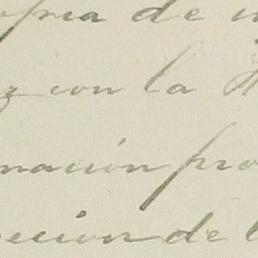 opia de
z con la
mación pro
cción de l